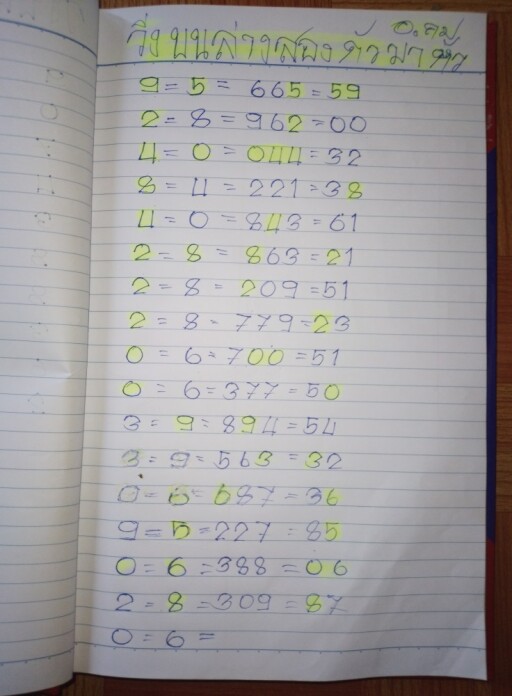 อ.ลม
วิ่งบนล่างสองตัวมาตัว
9 = 5 = 665 = 59
2 = 8 = 962 = 00
4 = 0 = 044 = 32
8 = 4 = 221 = 38
4 = 0 = 843 = 61
2 = 8 = 863 = 21
2 = 8 = 209 = 51
2 = 8 = 779 = 23
0 = 6 = 700 = 51
0 = 6 = 377 = 50
3 = 9 = 894 = 54
3 = 9 = 563 = 32
0 = 6 = 687 = 36
9 = 5 = 227 = 85
0 = 6 = 388 = 06
2 = 8 = 309 = 87
0 = 6 =